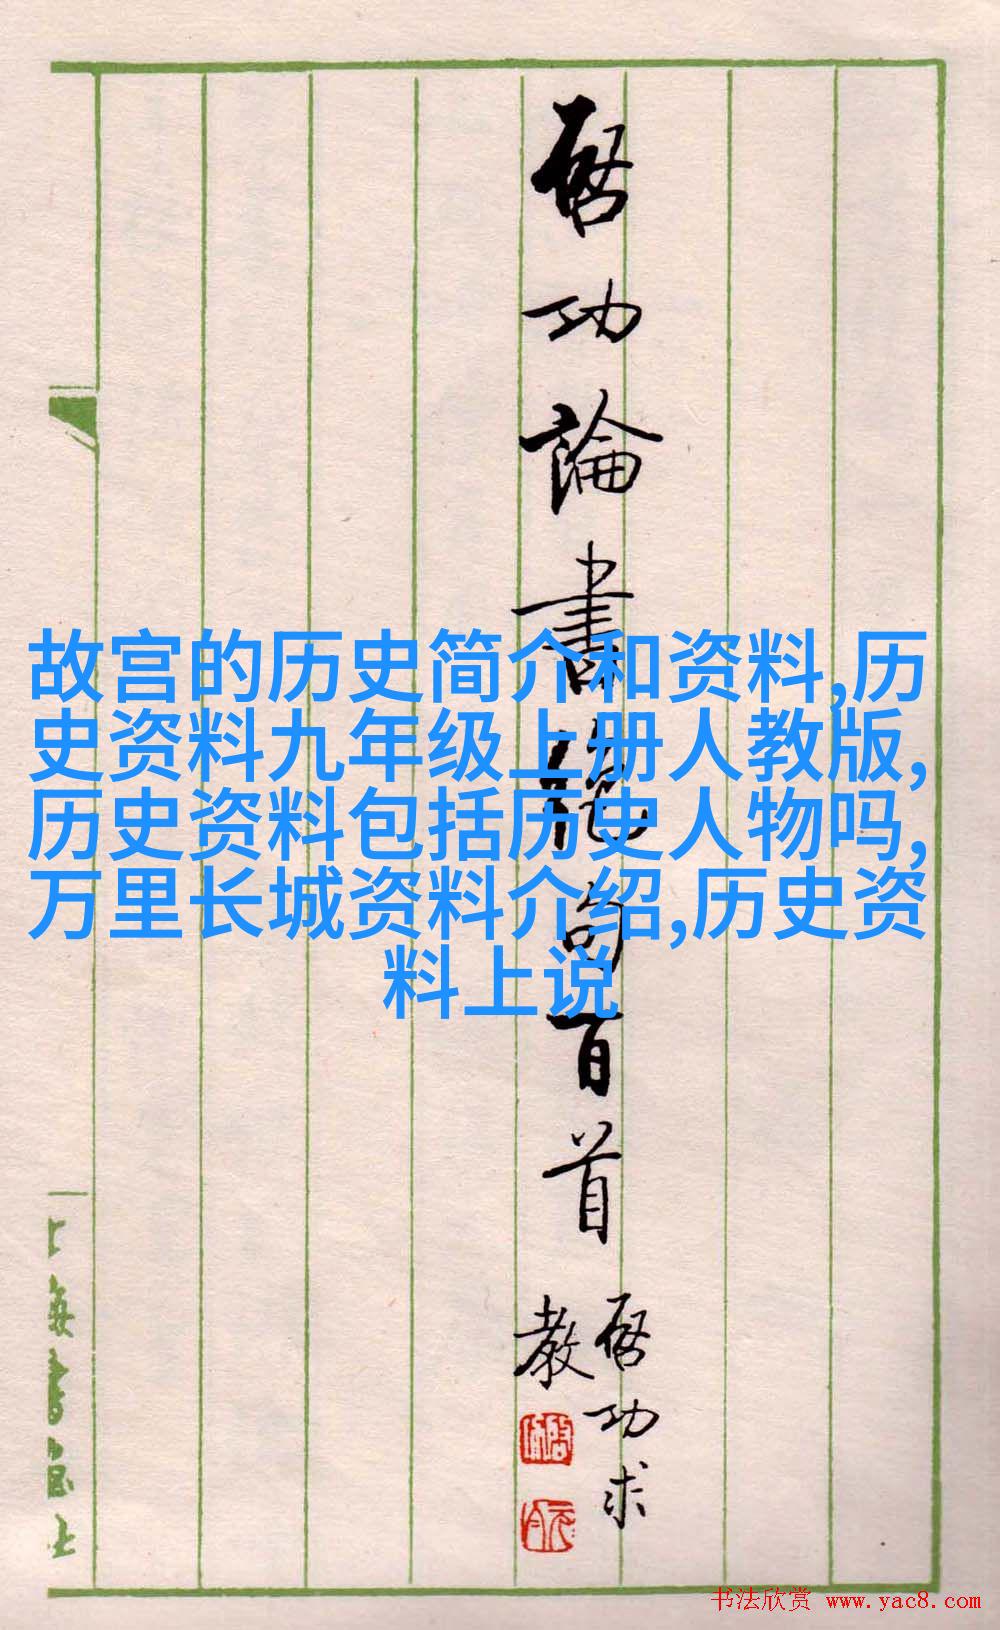 啓功論書絶句百首
啓功求
教
故宫的历史简介和资料,历
史资料九年级上册人教版,
历史资料包括历史人物吗,
万里长城资料介绍,历史资
料上说
上海書画社
书法欣赏 www.yac8.com